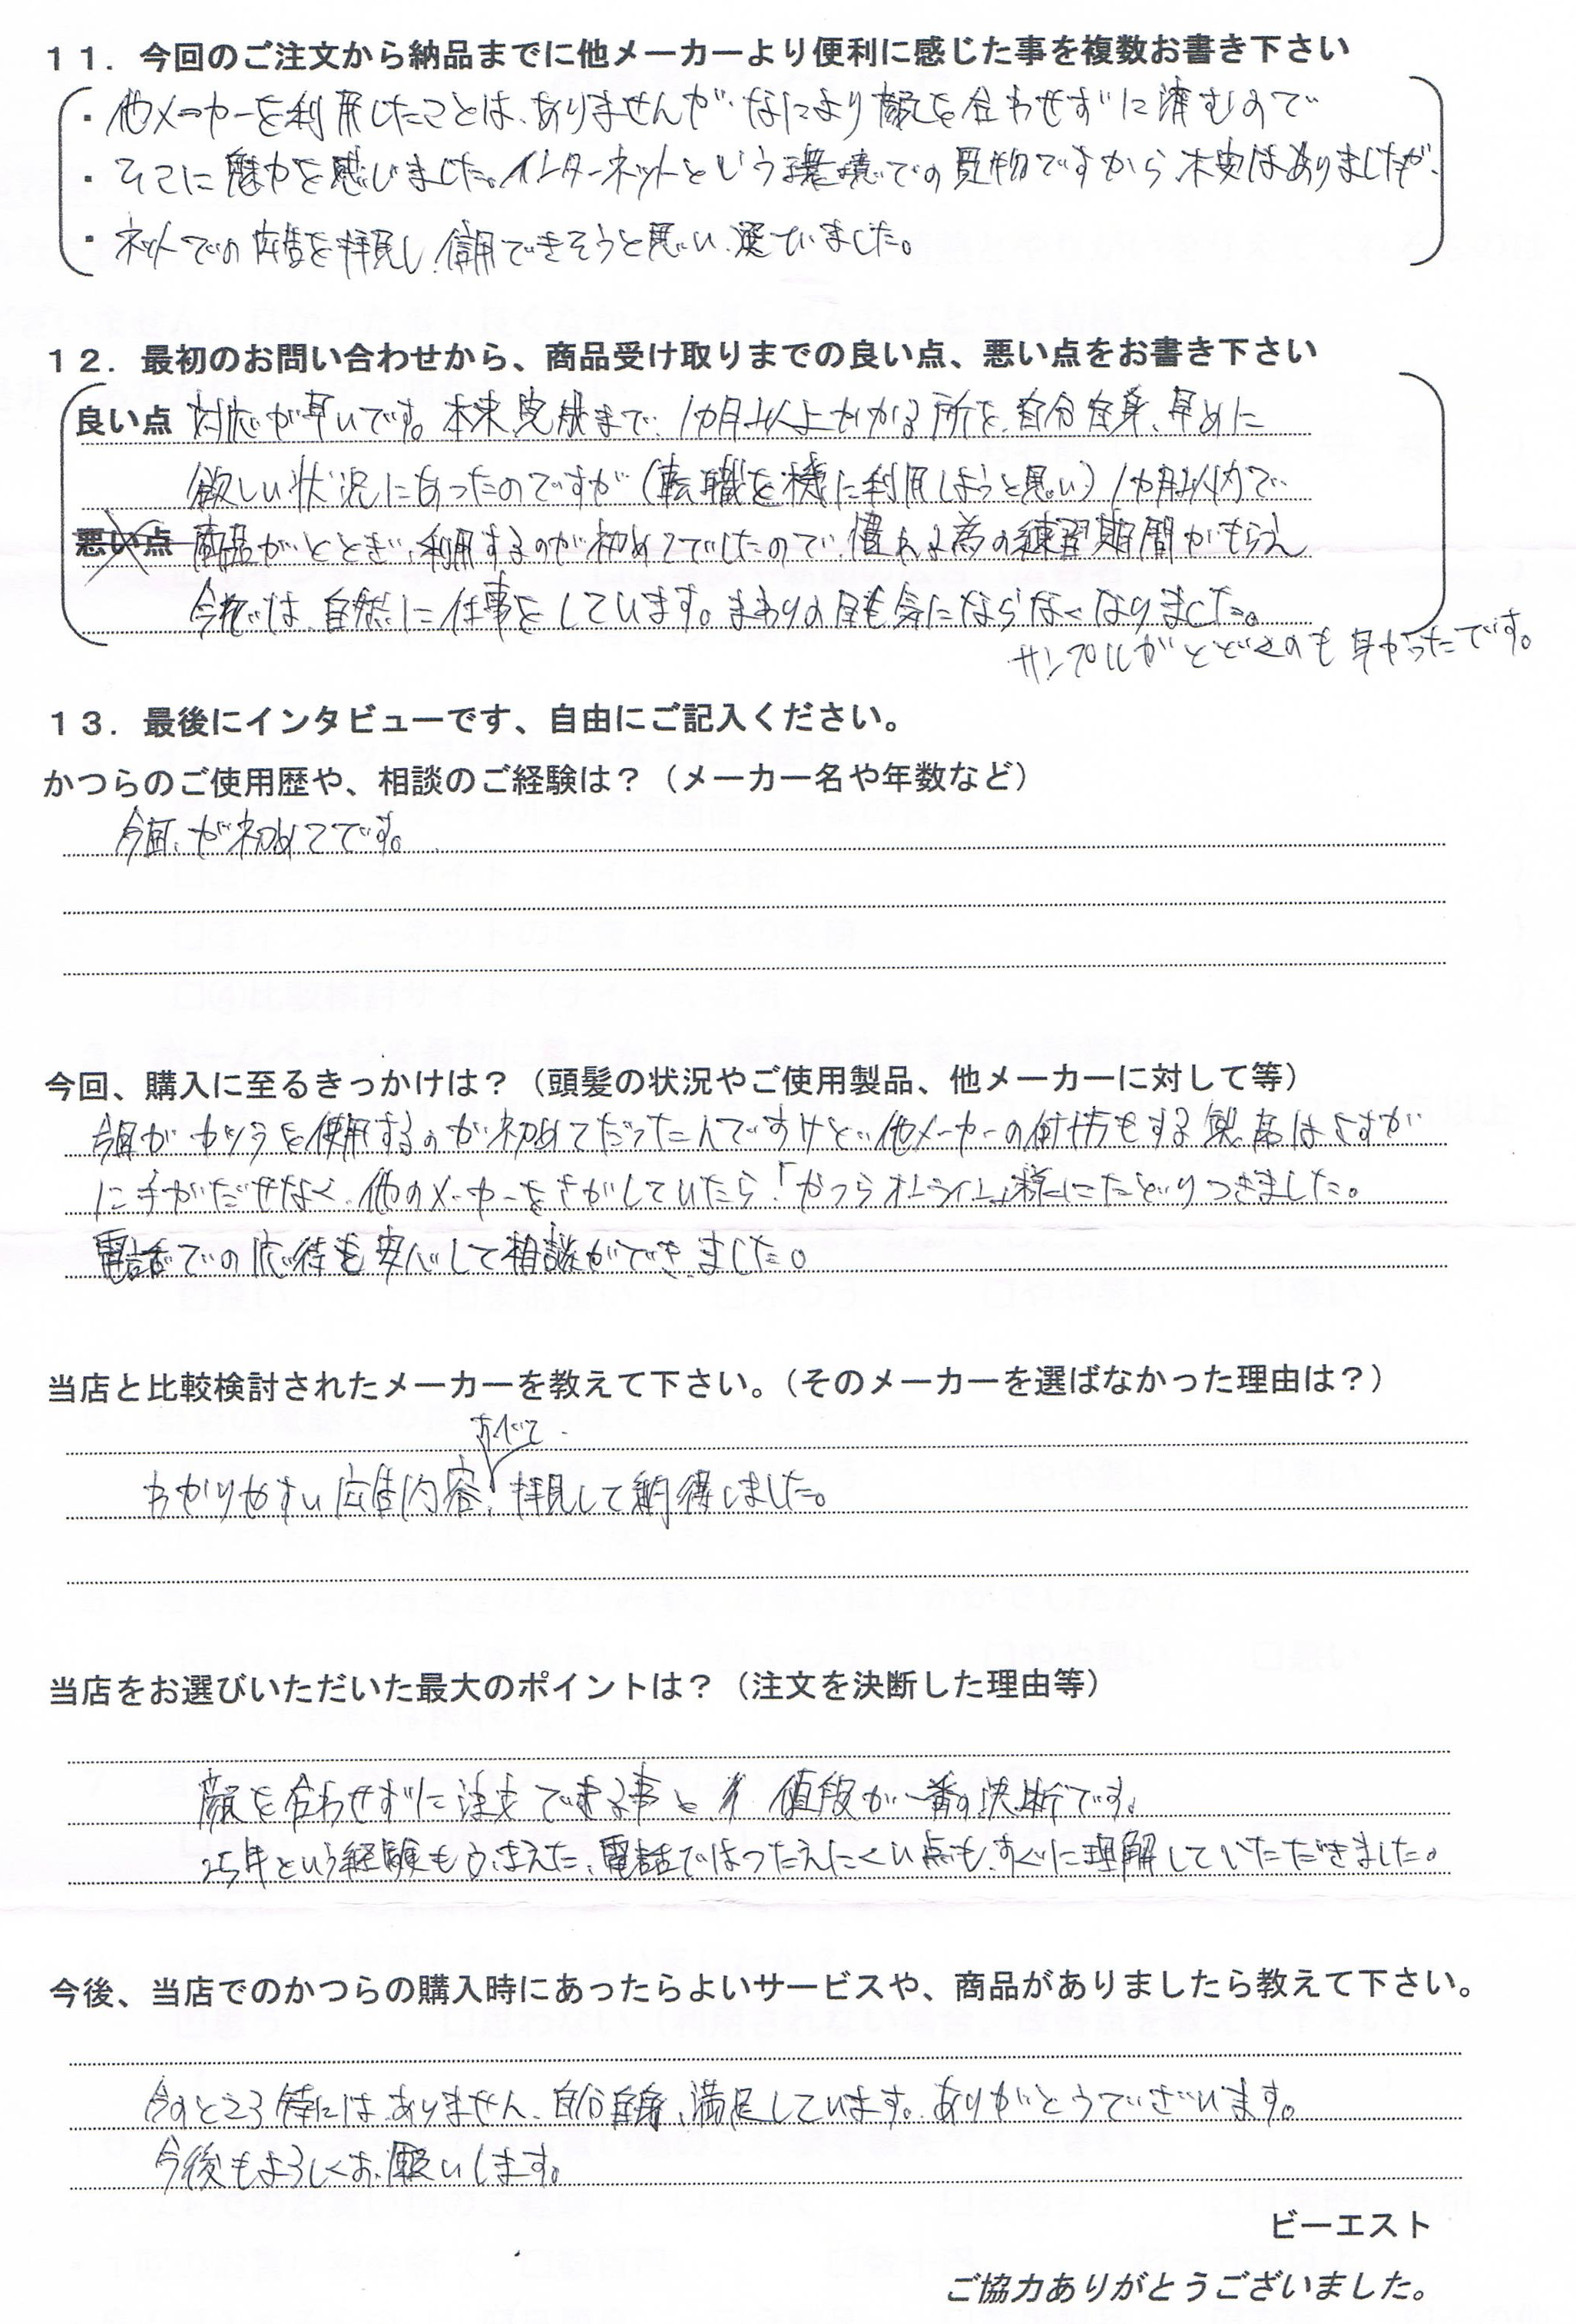 11．今回のご注文から納品までに他メーカーより便利に感じた事を複数お書き下さい
・他メーカーを利用したことは、ありませんが、なにより顔を合わせずに済むので
・そこに魅力を感じました。インターネットという環境での買物ですから、不安はありましたが、
・ネットでの広告を拝見し、信用できそうと思い、選ていました。
12．最初のお問い合わせから、商品受け取りまでの良い点、悪い点をお書き下さい
良い点 対応が早いです。本来完成まで、1カ月以上かかる所を、自分自身、早めに
欲しい状況にあったのですが（転職を機に利用しようと思い）1カ月以内で
悪い点 商品がととぎ、利用するのが初めてでしたので、慣れる為の練習期間がもらえ
今では、自然に仕事をしています。まわりの目も気にならなくなりました。
サンプルがとどくのも早かったです。
13．最後にインタビューです、自由にご記入ください。
かつらのご使用歴や、相談のご経験は？（メーカー名や年数など）
今回、が初めてです。
今回、購入に至るきっかけは？（頭髪の状況やご使用製品、他メーカーに対して等）
今回がカツラを使用するのが初めてだったんですけど、他メーカーの何十万もする製品はさすが
に手がだせなく、他のメーカーをさがしていたら、「かつらオンライン」様にたどりつきました。
電話での応待も安心して相談ができました。
当店と比較検討されたメーカーを教えて下さい。（そのメーカーを選ばなかった理由は？）
すべて
わかりやすい広告内容、拝見して納得しました。
当店をお選びいただいた最大のポイントは？（注文を決断した理由等）
顔を合わせずに注文できる事と、値段が一番の決断です。
25年という経験もふまえた、電話ではつたえにくい点も、すぐに理解していただきました。
今後、当店でのかつらの購入時にあったらよいサービスや、商品がありましたら教えて下さい。
今のところ特にはありません、自分自身、満足しています。ありがとうございます。
今後もよろしくお願いします。
ビーエスト
ご協力ありがとうございました。